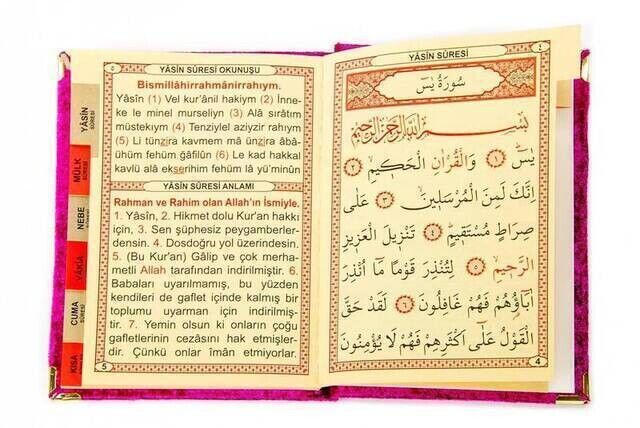 YÂSİN SÛRESİ OKUNUŞU
Bismillâhirrahmânirrahıym.
Yâsîn (1) Vel kur'ânil hakiym (2) İnne-
ke le minel murseliyn (3) Alâ sırâtım
müstekıym (4) Tenziylel aziyzir rahıym
(5) Li tünzira kavmem mâ ünzira âbâ-
ühüm fehüm ğâfilûn (6) Le kad hakkal
kavlü alâ ekserihim fehüm lâ yü'minûn
YÂSÎN SÛRESİ ANLAMI
Rahman ve Rahim olan Allah'ın İsmiyle.
1. Yâsîn, 2. Hikmet dolu Kur'an hakkı
için, 3. Sen şüphesiz peygamberler-
densin. 4. Dosdoğru yol üzerindesin.
5. (Bu Kur'an) Gâlip ve çok merha-
metli Allah tarafından indirilmiştir. 6.
Babaları uyarılmamış, bu yüzden
kendileri de gaflet içinde kalmış bir
toplumu uyarman için indirilmiş-
tir. 7. Yemin olsun ki onların çoğu
gafletlerinin cezasını hak etmişler-
dir. Çünkü onlar îmân etmiyorlar.
5
YÂSİN SÛRESİ
٤
سُورَةُ يٰسٓ
بِسْمِ اللّٰهِ الرَّحْمٰنِ الرَّحِيمِ
يٰسٓ ﴿١﴾ وَالْقُرْاٰنِ الْحَكِيمِ ﴿٢﴾
اِنَّكَ لَمِنَ الْمُرْسَلِينَ ﴿٣﴾ عَلٰى
صِرَاطٍ مُسْتَقِيمٍ ﴿٤﴾ تَنْزِيلَ الْعَزِيزِ
الرَّحِيمِ ﴿٥﴾ لِتُنْذِرَ قَوْمًا مَٓا اُنْذِرَ
اٰبَٓاؤُهُمْ فَهُمْ غَافِلُونَ ﴿٦﴾ لَقَدْ حَقَّ
الْقَوْلُ عَلٰٓى اَكْثَرِهِمْ فَهُمْ لَا يُؤْمِنُونَ
4
YÂSİN
SÛRESİ
MÜLK
SÛRESİ
NEBE
SÛRESİ
VÂKIA
CUMA
SÛRESİ
KISA